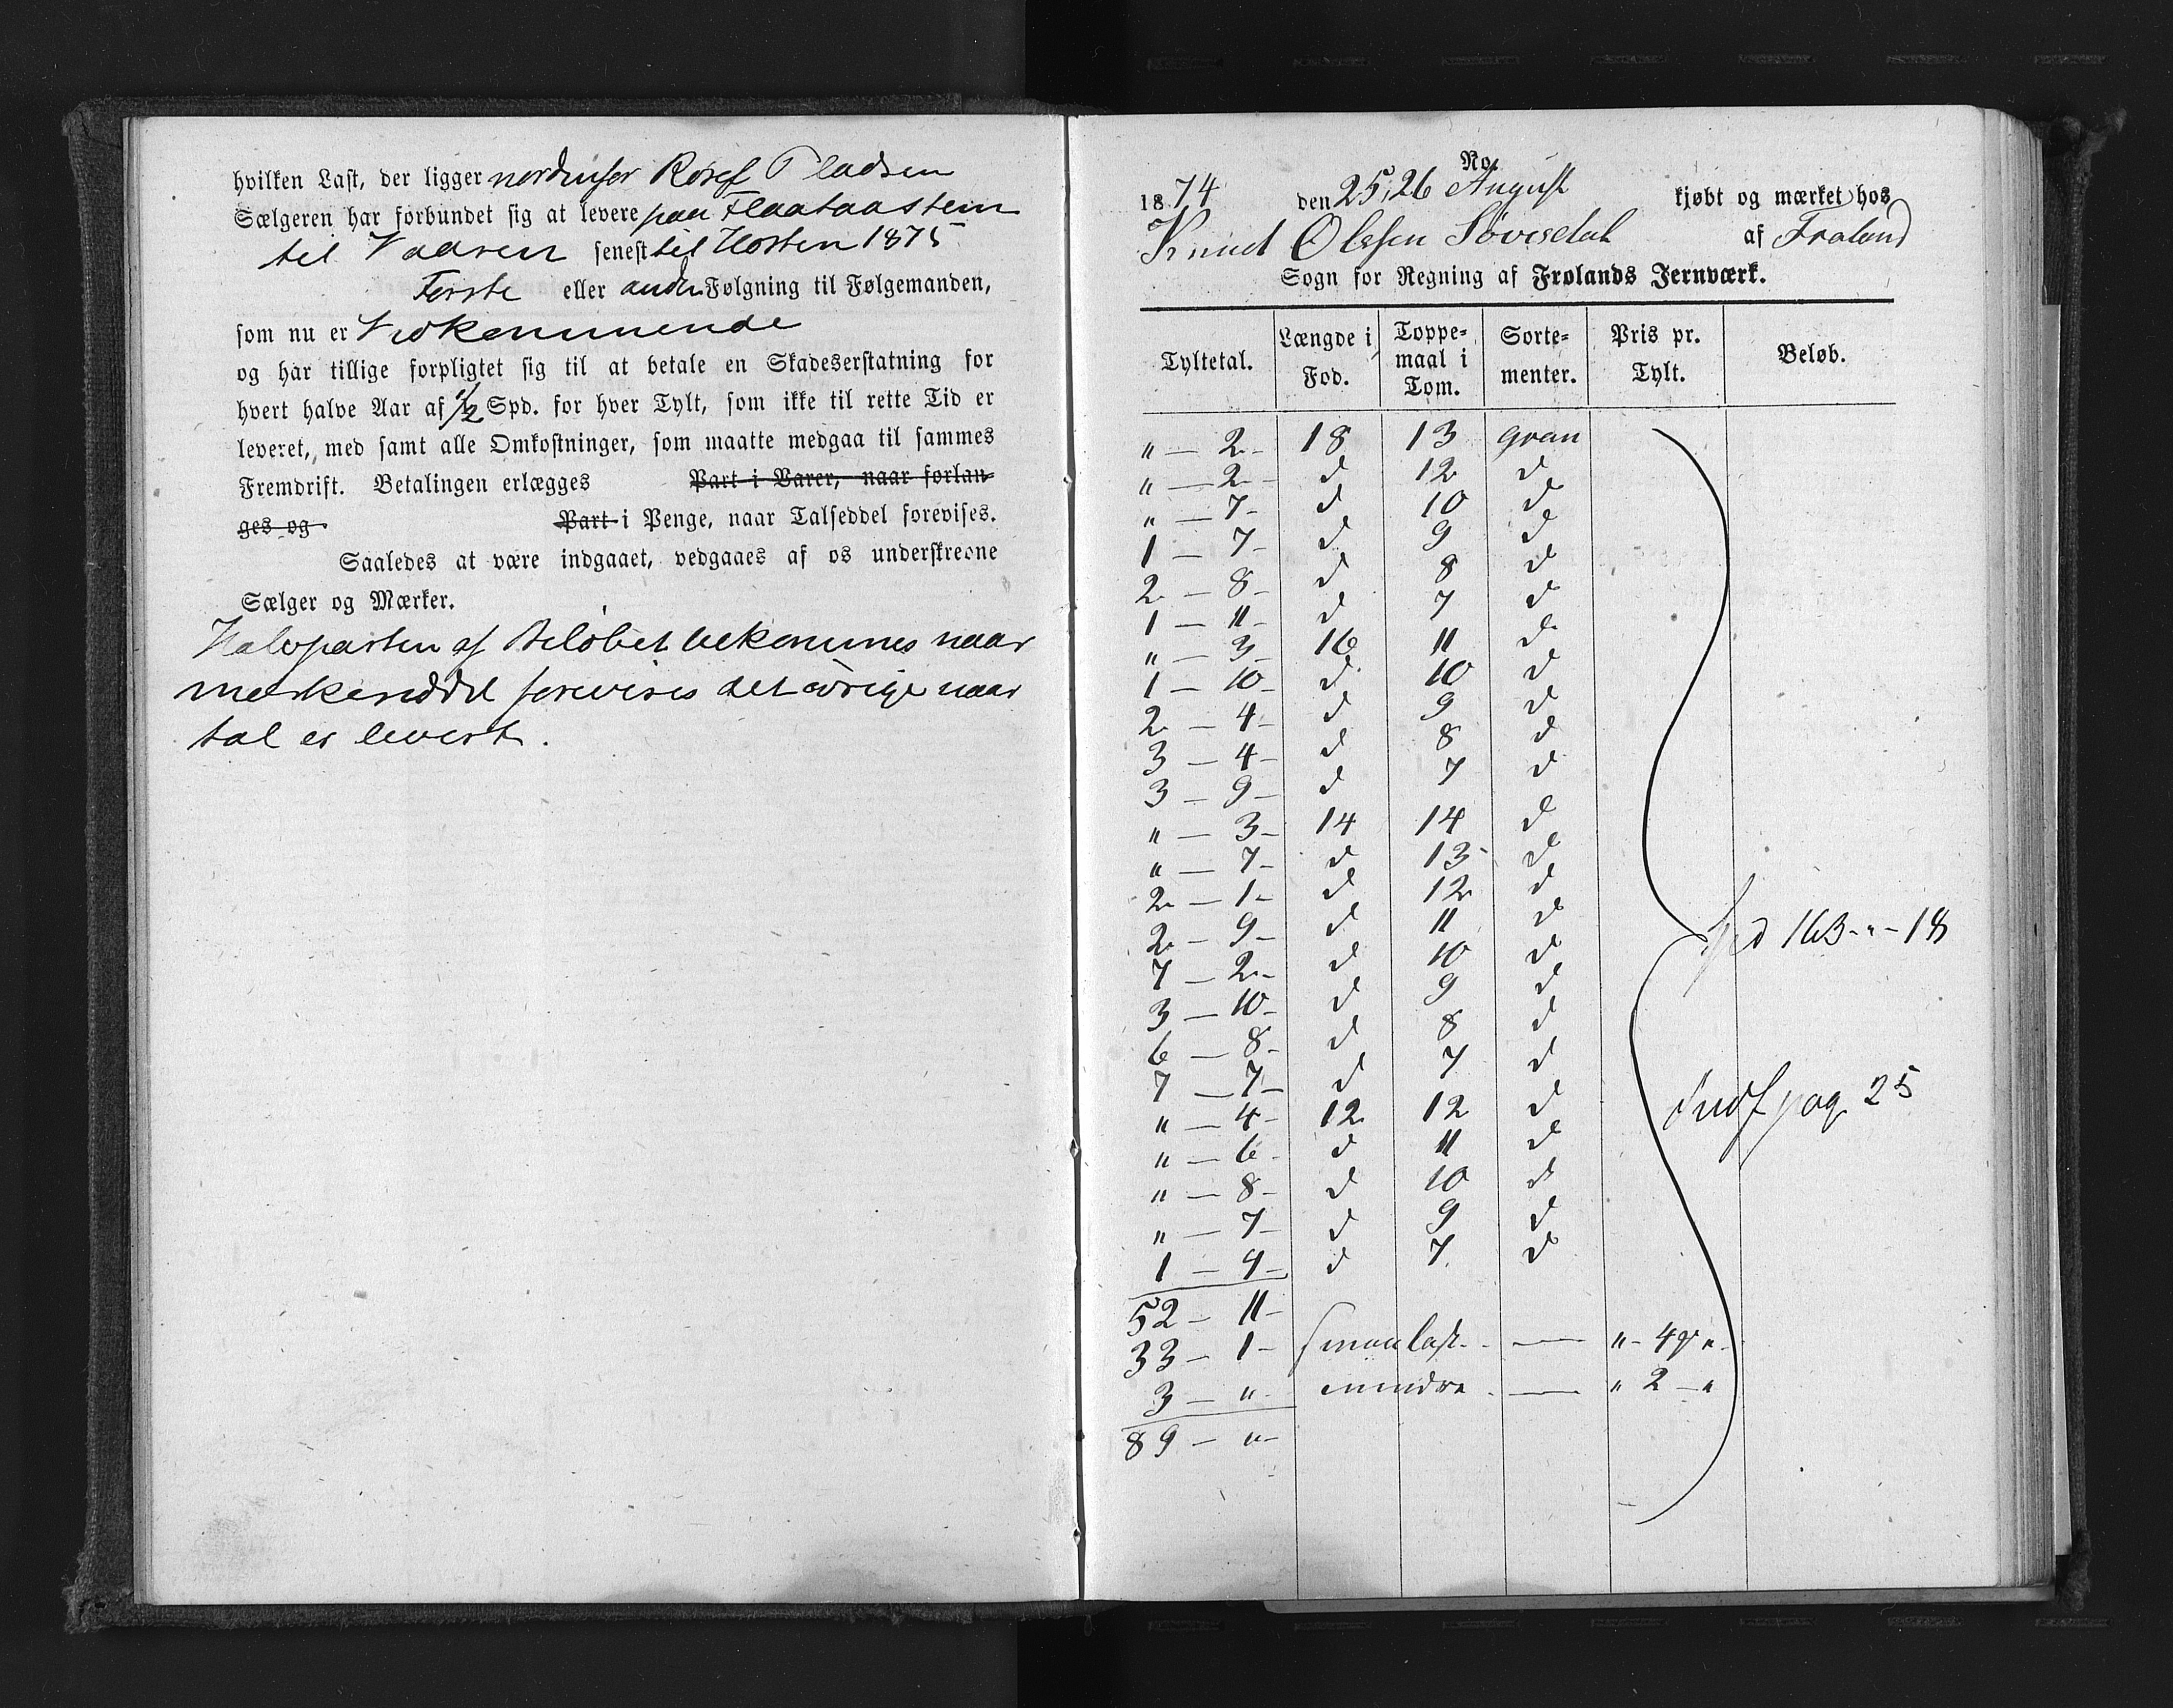 hvilken Last, der ligger nordenfor Roref Pladsen
Sælgeren har forbundet sig at levere paa Flaataastem
til Vadren senest til Hosten 1875
Forste eller anden Følgning til Følgemanden,
som nu er Vedkommende
og har tillige forpligtet sig til at betale en Skadeserstatning for
hvert halve Aar af 1/2 Spd. for hver Tylt, som ikke til rette Tid er
leveret, med samt alle Omkostninger, som maatte medgaa til sammes
Fremdrift. Betalingen erlægges Part i Varer, naar forlan-
ges og Part i Penge, naar Talseddel forevises.
Saaledes at være indgaaet, vedgaaes af os underskrevne
Sælger og Mærker.
Halvparten af Beløbet bekommes naar
merkeseddel forevises det øvrige naar
tal er levert.
No.
1874 den 25, 26 August kjøbt og mærket hos
Knud Olssen Sovesdal af Froland
Sogn for Regning af Frolands Jernværk.
Tyltetal. Længde i Fod. Toppe-maal i Tom. Sorte-menter. Pris pr. Tylt. Beløb.
" — 2 — 18 13 gran
" — 2 — d 12 d
" — 7 — d 10 d
1 — 7 — d 9 d
2 — 8 — d 8 d
1 — 11 — d 7 d
" — 3 — 16 11 d
1 — 10 — d 10 d
2 — 4 — d 9 d
3 — 4 — d 8 d
3 — 9 — d 7 d
" — 3 — 14 14 d
" — 7 — d 13 d
2 — 1 — d 12 d
2 — 9 — d 11 d
Spd 163 - " - 18
7 — 2 — d 10 d
3 — 10 — d 9 d
6 — 8 — d 8 d
7 — 7 — d 7 d
Indf pag 25
" — 4 — 12 12 d
" — 6 — d 11 d
" — 8 — d 10 d
" — 7 — d 9 d
1 — 4 — d 7 d
52 — 11 —
33 — 1 — smaalast — " - 48 "
3 — " — mindre — " 2 — "
89 — " —